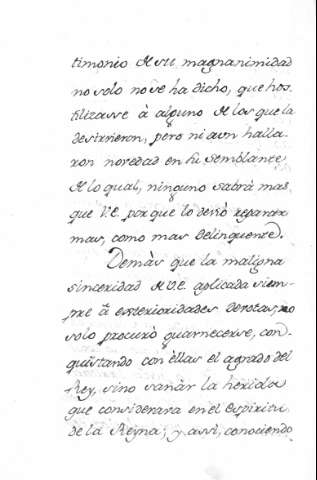 timonio de su magnanimidad
no solo no se ha dicho, que hos-
tilizasse à alguno de los que la
desirvieron, pero ni aun halla-
ron novedad en su semblante,
de lo qual, ninguno sabrà mas
que V.E. porque lo deviò reparar
mas, como mas delinquente.
Demàs que la maligna
sinceridad de V.E. aplicada siem-
pre à exterioridades devotas, no
solo procurò guarnecerse, con-
quistando con ellas el agrado del
Rey, sino sanàr la herida
que considerava en el Espiritu
de la Reyna; y assi, conociendo